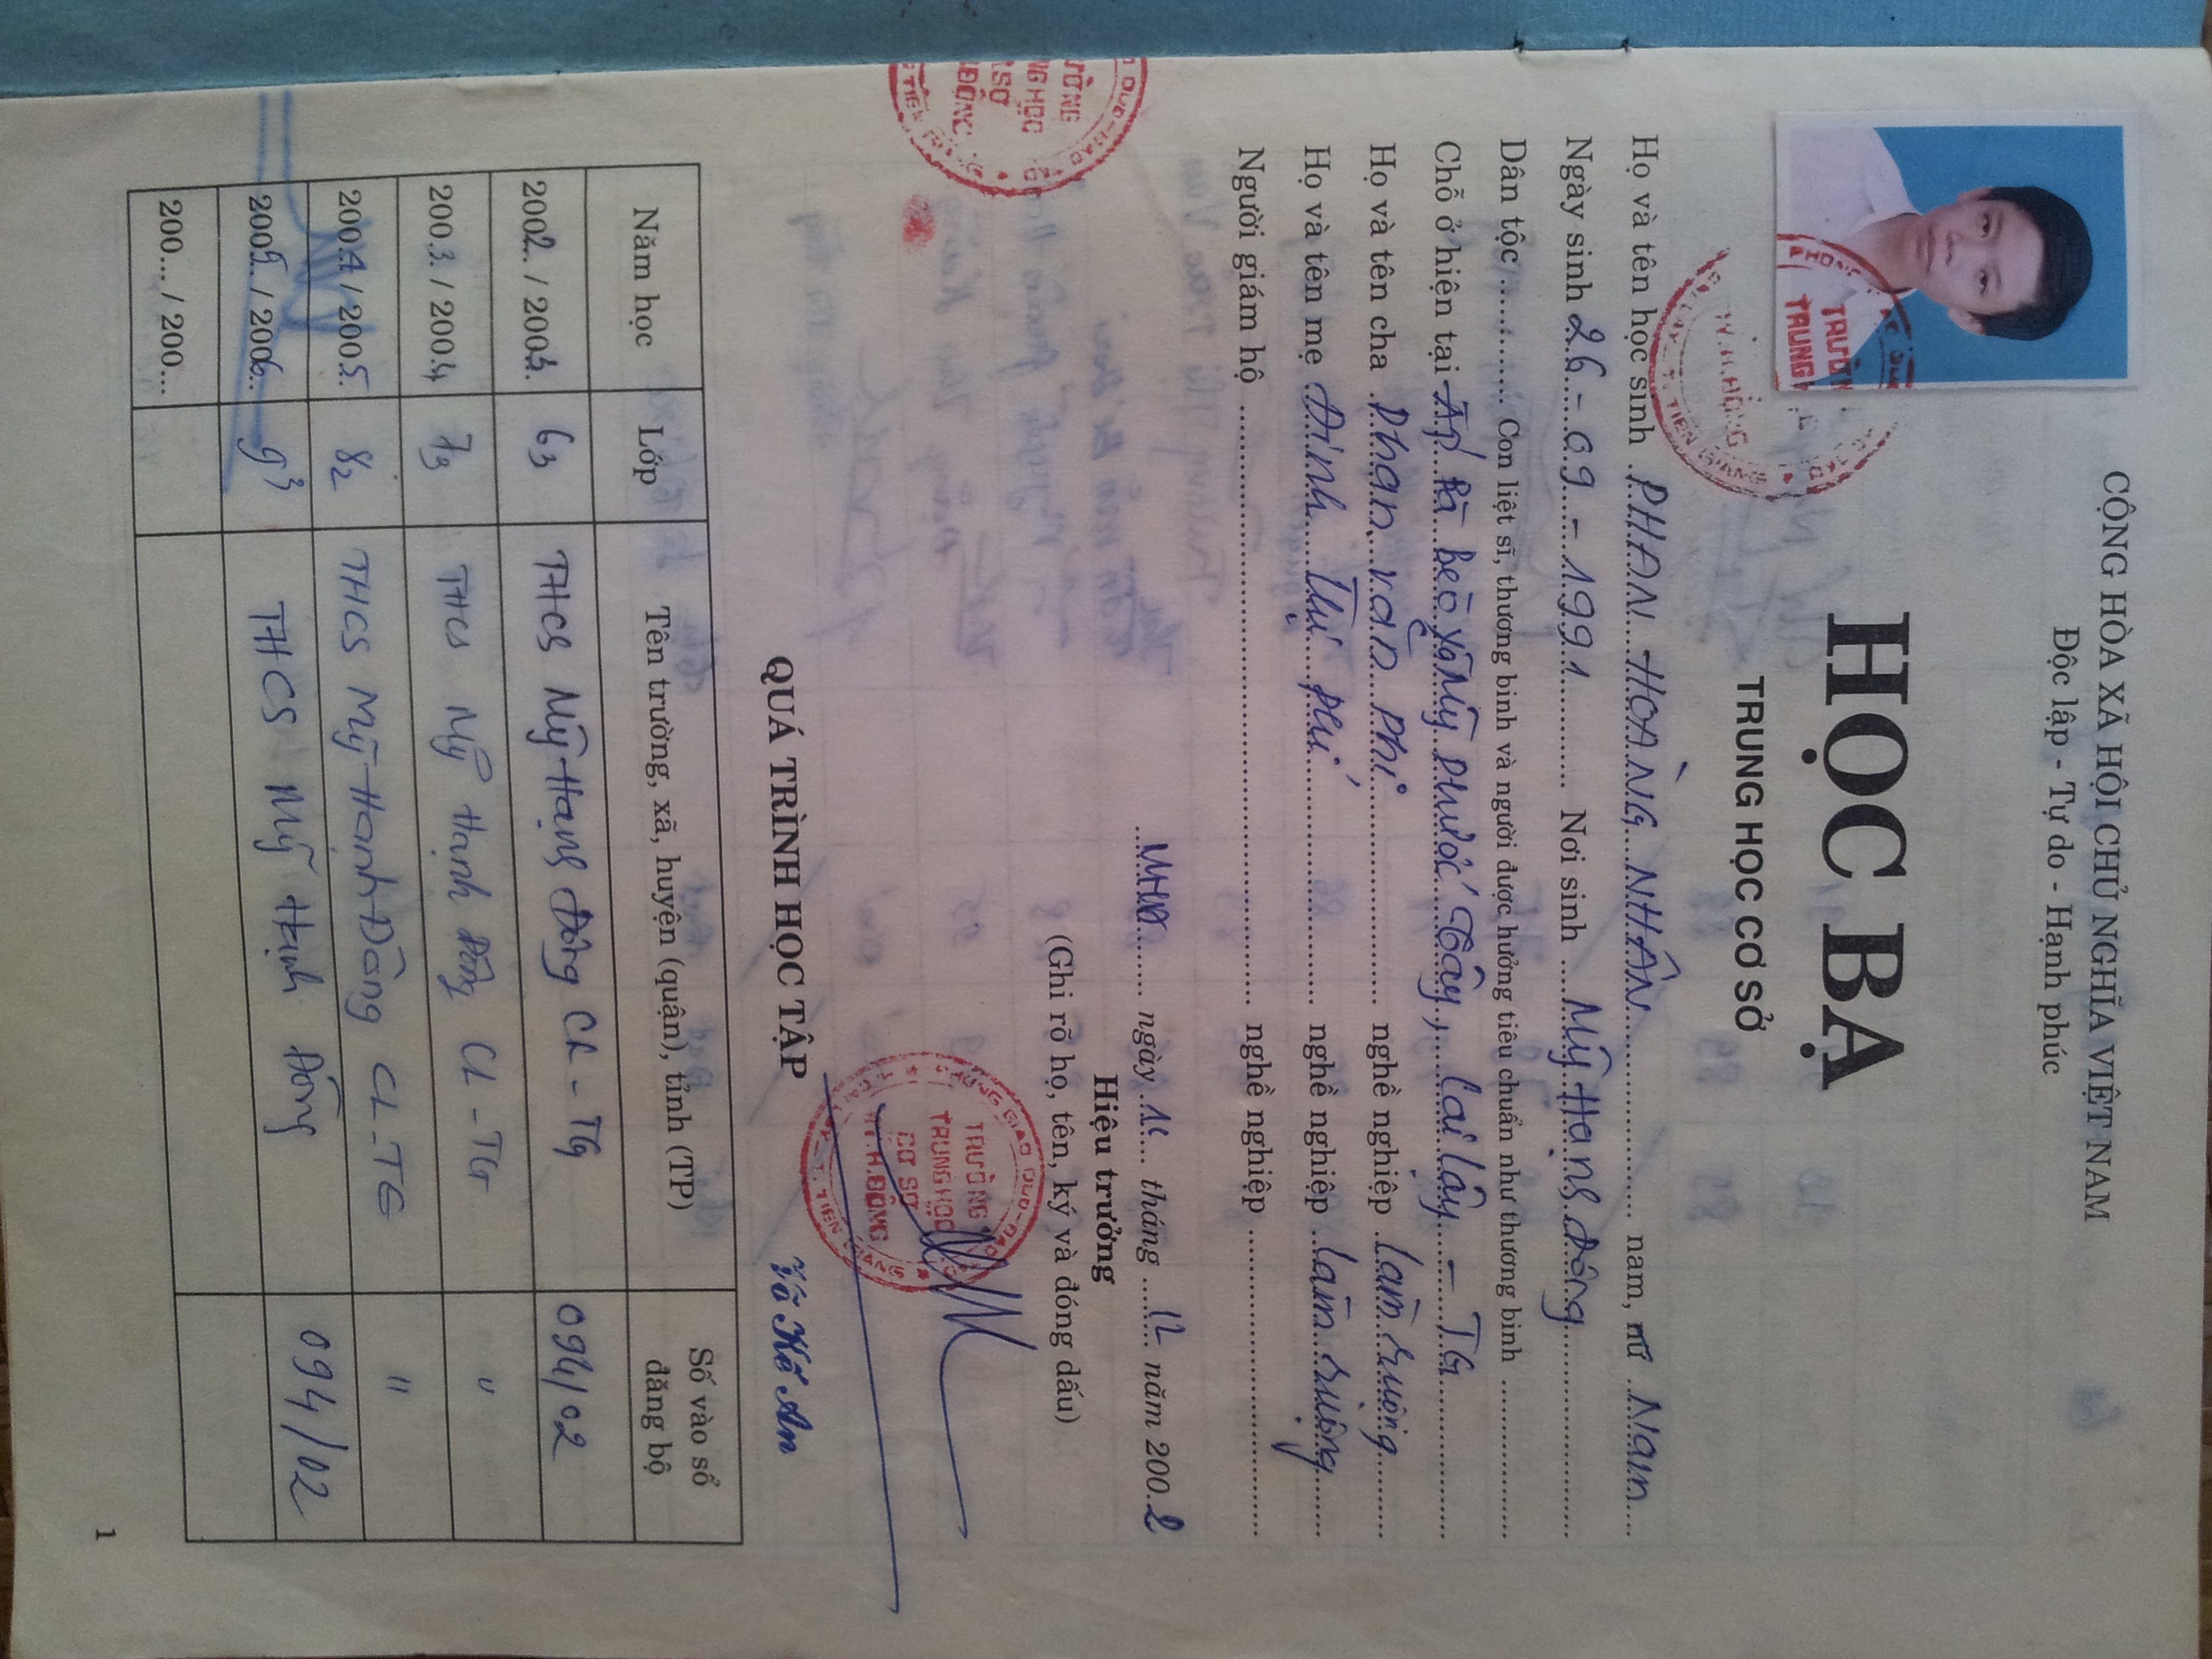 CỘNG HÒA XÃ HỘI CHỦ NGHĨA VIỆT NAM
Độc lập - Tự do - Hạnh phúc
HỌC BẠ
TRUNG HỌC CƠ SỞ
Họ và tên học sinh PHAN HOÀNG NHÂN nam, nữ Nam
Ngày sinh 26 - 09 - 1991 Nơi sinh Mỹ Hạnh Đông
Dân tộc ............... Con liệt sĩ, thương binh và người được hưởng tiêu chuẩn như thương binh ...................
Chỗ ở hiện tại xã Mỹ Phước Tây, Cai Lậy - TG
Họ và tên cha Phan Văn Phi nghề nghiệp Làm ruộng
Họ và tên mẹ Đinh Thị nghề nghiệp Làm ruộng
Người giám hộ ............... nghề nghiệp ...............
MHĐ ngày tháng năm 2002
Hiệu trưởng
(Ghi rõ họ, tên, ký và đóng dấu)
TRƯỜNG
TRUNG HỌC
CƠ SỞ
MY.H.ĐÔNG
QUÁ TRÌNH HỌC TẬP
Năm học Lớp Tên trường, xã, huyện (quận), tỉnh (TP) Số vào sổ đăng bộ
2002 / 2003 63 THCS Mỹ Hạnh Đông CL - TG 094/02
2003 / 2004 73 THCS Mỹ Hạnh Đông CL - TG "
2004 / 2005 82 THCS Mỹ Hạnh Đông CL - TG "
2005 / 2006 9³ THCS Mỹ Hạnh Đông 094/02
200... / 200...
1